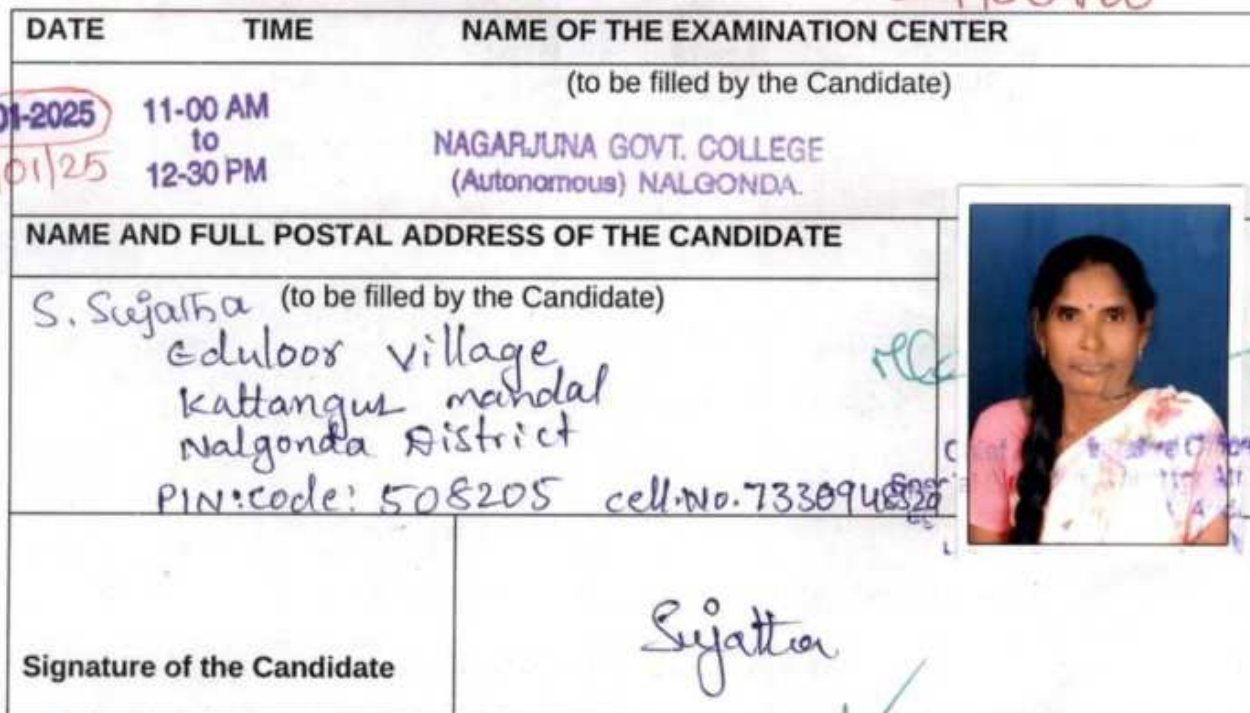 DATE TIME NAME OF THE EXAMINATION CENTER
(to be filled by the Candidate)
01-2025 11-00 AM
to
01/25 12-30 PM
NAGARJUNA GOVT. COLLEGE
(Autonomous) NALGONDA.
NAME AND FULL POSTAL ADDRESS OF THE CANDIDATE
(to be filled by the Candidate)
S. Sujatha
Eduloor Village
Kattangur mandal
Nalgonda District
PIN:code: 508205 cell.No.
Signature of the Candidate
Sujatha